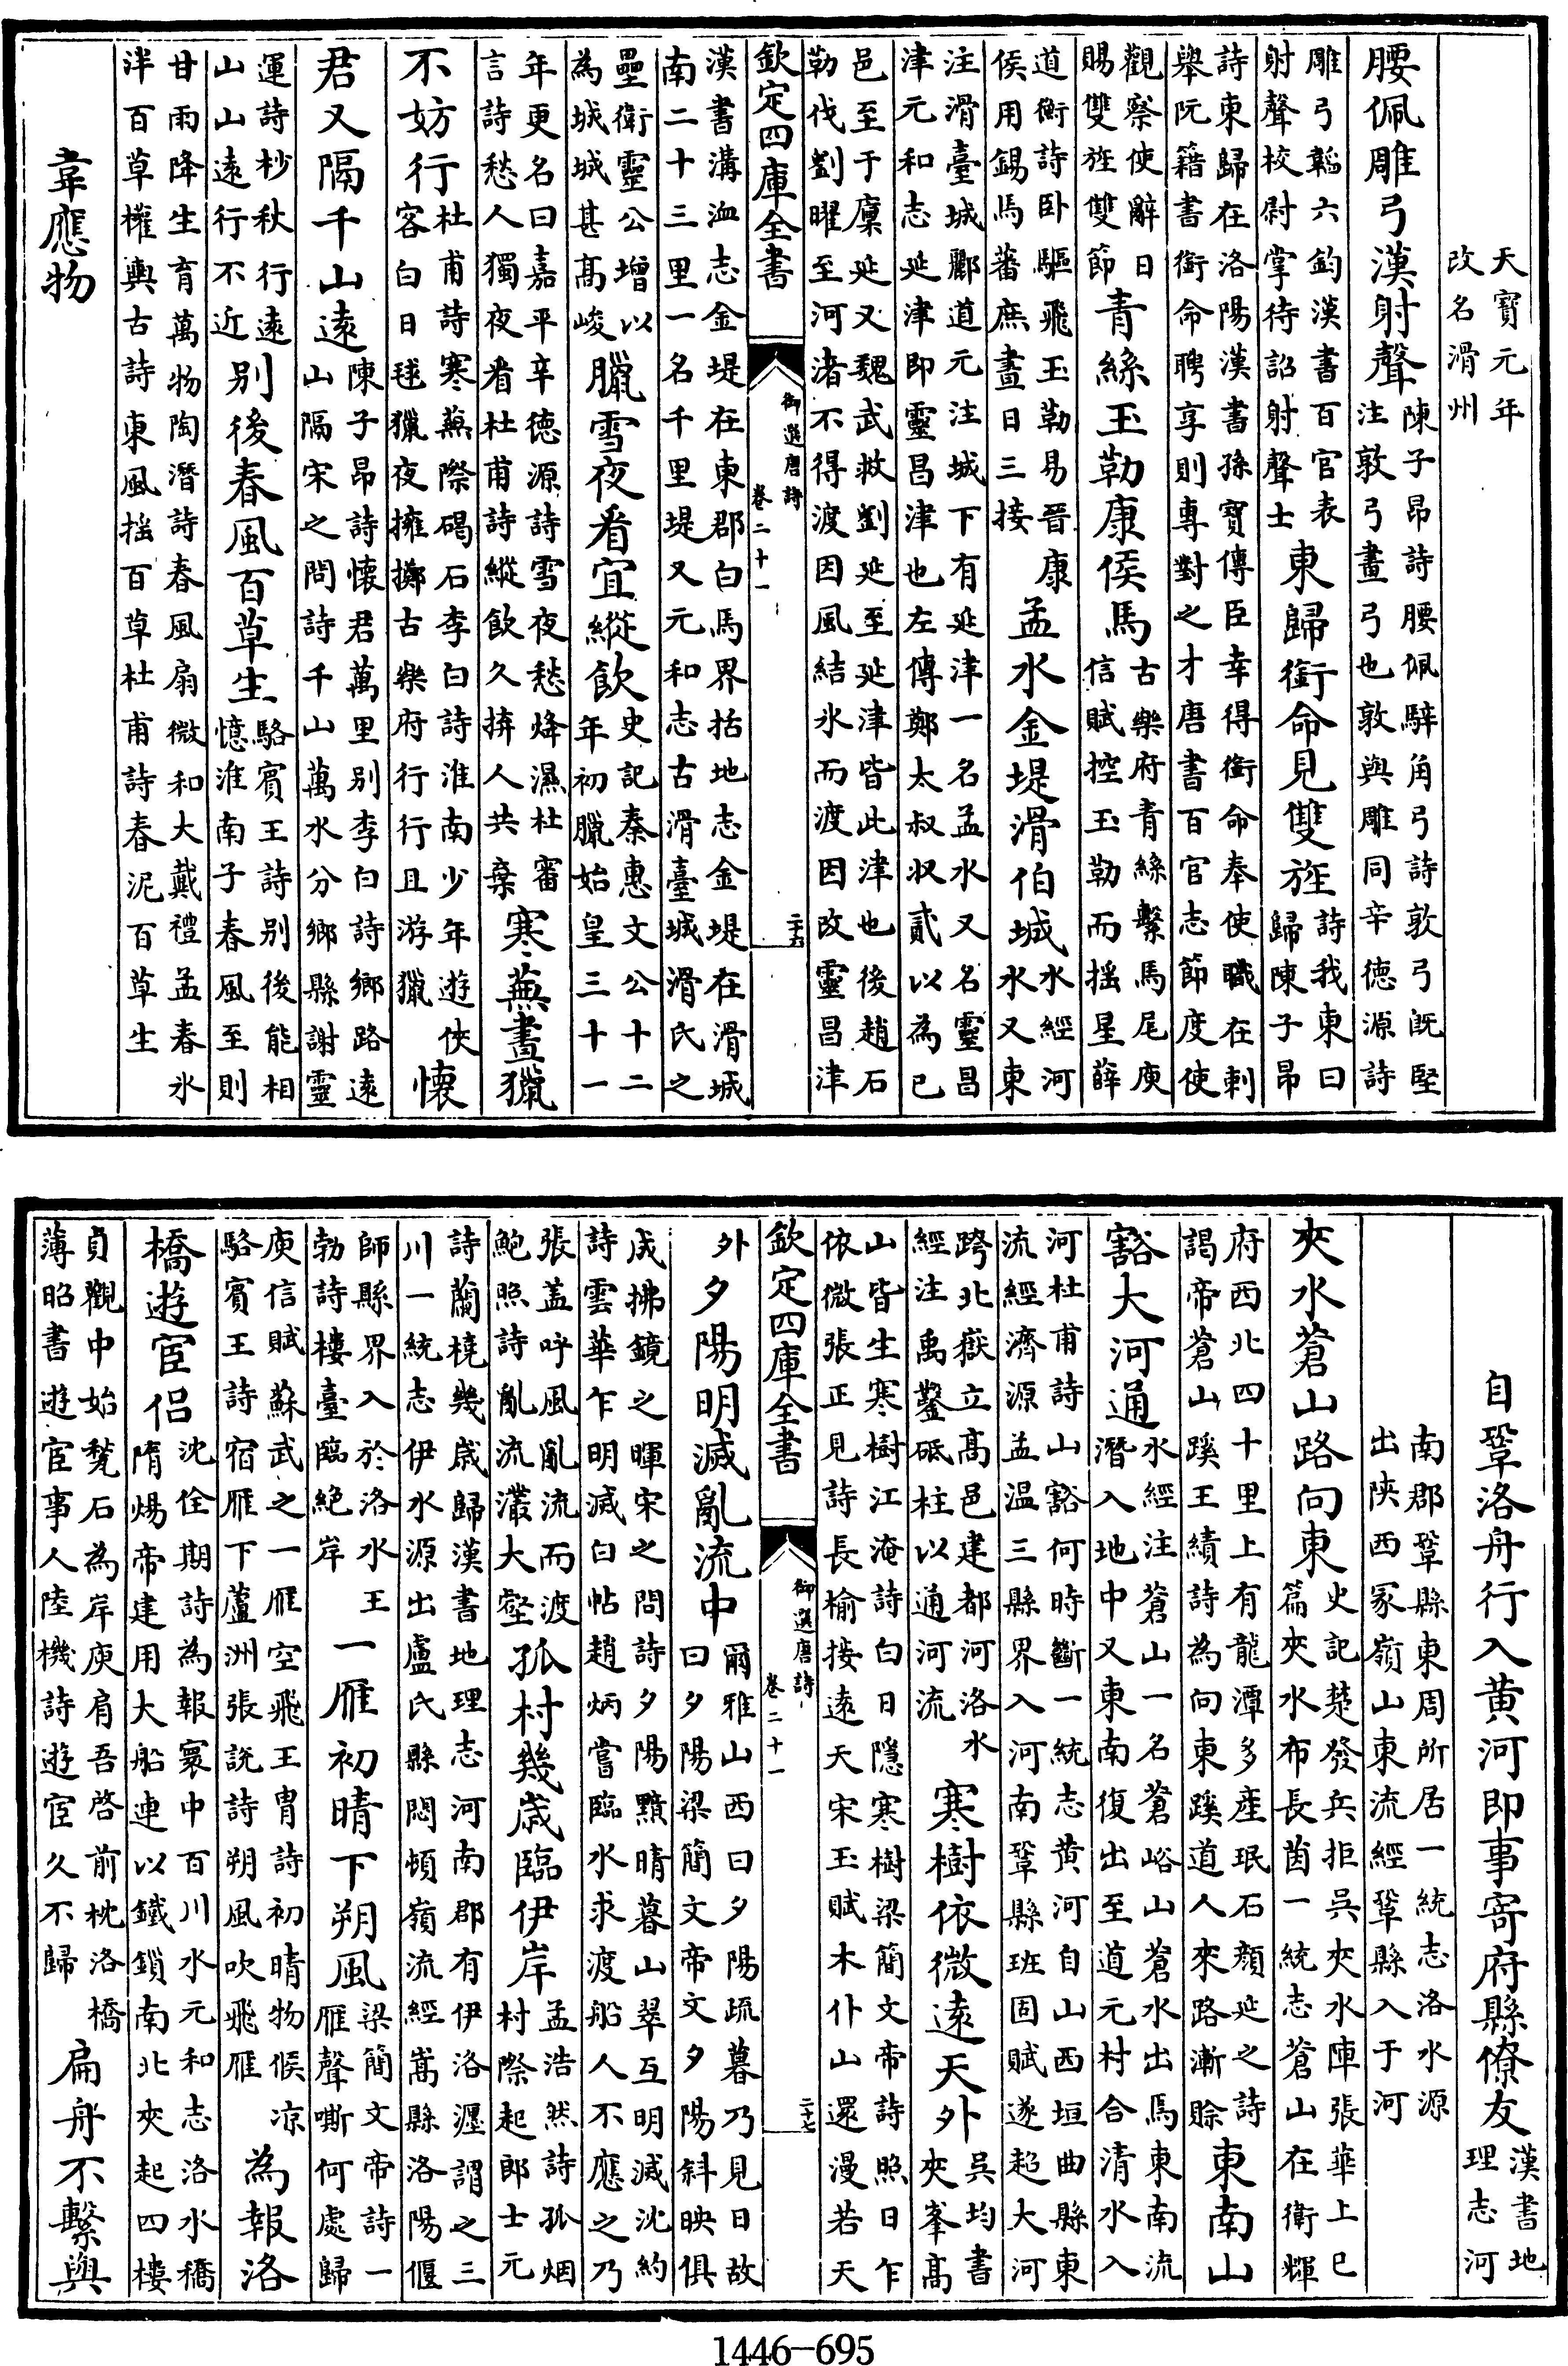 天寶元年
改名滑州
腰佩雕弓漢射聲
陳子昂詩腰佩騂角弓詩敦弓既堅
注敦弓畫弓也敦與雕同辛德源詩
雕弓韜六鈞漢書百官表
射聲校尉掌待詔射聲士
東歸銜命見雙旌
詩我東曰
歸陳子昂
詩東歸在洛陽漢書孫寶傳臣幸得銜命奉使職在刺
舉阮籍書銜命聘享則專對之才唐書百官志節度使
觀察使辭日
賜雙旌雙節
青絲玉勒康侯馬
古樂府青絲繫馬尾庾
信賦控玉勒而搖星薛
道衡詩卧驅飛玉勒易晉康
侯用錫馬蕃庶晝日三接
孟水金堤滑伯城
水經河
水又東
注滑臺城酈道元注城下有延津一名孟水又名靈昌
津元和志延津即靈昌津也左傳鄭太叔收貳以為已
邑至于廩延又魏武救劉延至延津皆此津也後趙石
勒伐劉曜至河渚不得渡因風結氷而渡因改靈昌津
欽定四庫全書
御選唐詩
卷二十一
二十六
漢書溝洫志金堤在東郡白馬界括地志金堤在滑城
南二十三里一名千里堤又元和志古滑臺城滑氏之
壘衛靈公增以
為城城甚高峻
臘雪夜看宜縱飲
史記秦惠文公十二
年初臘始皇三十一
年更名曰嘉平辛德源詩雪夜愁烽濕杜審
言詩愁人獨夜看杜甫詩縱飲久拚人共棄
寒蕪晝獵
不妨行
杜甫詩寒蕪際碣石李白詩淮南少年遊俠
客白日毬獵夜擁擲古樂府行行且游獵
懷
君又隔千山遠
陳子昂詩懷君萬里别李白詩鄉路遠
山隔宋之問詩千山萬水分鄉縣謝靈
運詩杪秋行遠
山山遠行不近
别後春風百草生
駱賓王詩别後能相
憶淮南子春風至則
甘雨降生育萬物陶潛詩春風扇微和大戴禮孟春氷
泮百草權輿古詩東風摇百草杜甫詩春泥百草生
韋應物
自鞏洛舟行入黄河即事寄府縣僚友
漢書地
理志河
南郡鞏縣東周所居一統志洛水源
出陝西冢嶺山東流經鞏縣入于河
夾水蒼山路向東
史記楚發兵拒吳夾水陣張華上巳
篇夾水布長茵一統志蒼山在衛輝
府西北四十里上有龍潭多產珉石顔延之詩
謁帝蒼山蹊王績詩為向東蹊道人來路漸賒
東南山
豁大河通
水經注蒼山一名蒼峪山蒼水出馬東南流
潛入地中又東南復出至道元村合清水入
河杜甫詩山豁何時斷一統志黄河自山西垣曲縣東
流經濟源孟温三縣界入河南鞏縣班固賦遂超大河
跨北嶽立高邑建都河洛水
經注禹鑿砥柱以通河流
寒樹依微遠天外
吳均書
夾峯高
山皆生寒樹江淹詩白日隱寒樹梁簡文帝詩照日乍
依微張正見詩長榆接遠天宋玉賦木仆山還漫若天
欽定四庫全書
御選唐詩
卷二十一
二十七
外
夕陽明滅亂流中
爾雅山西曰夕陽疏暮乃見日故
曰夕陽梁簡文帝文夕陽斜映俱
成拂鏡之暉宋之問詩夕陽黯晴暮山翠互明滅沈約
詩雲華乍明滅白帖趙炳嘗臨水求渡船人不應之乃
張盖呼風亂流而渡
鮑照詩亂流灇大壑
孤村幾歲臨伊岸
孟浩然詩孤烟
村際起郎士元
詩蘭橈幾歲歸漢書地理志河南郡有伊洛瀍謂之三
川一統志伊水源出盧氏縣悶頓嶺流經嵩縣洛陽偃
師縣界入於洛水王
勃詩樓臺臨絶岸
一雁初晴下朔風
梁簡文帝詩一
雁聲嘶何處歸
庾信賦蘇武之一雁空飛王胄詩初晴物候凉
駱賓王詩宿雁下蘆洲張説詩朔風吹飛雁
為報洛
橋遊宦侣
沈佺期詩為報寰中百川水元和志洛水橋
隋煬帝建用大船連以鐵鎖南北夾起四樓
貞觀中始甃石為岸庾肩吾啓前枕洛橋
薄昭書遊宦事人陸機詩遊宦久不歸
扁舟不繫與
1446-695